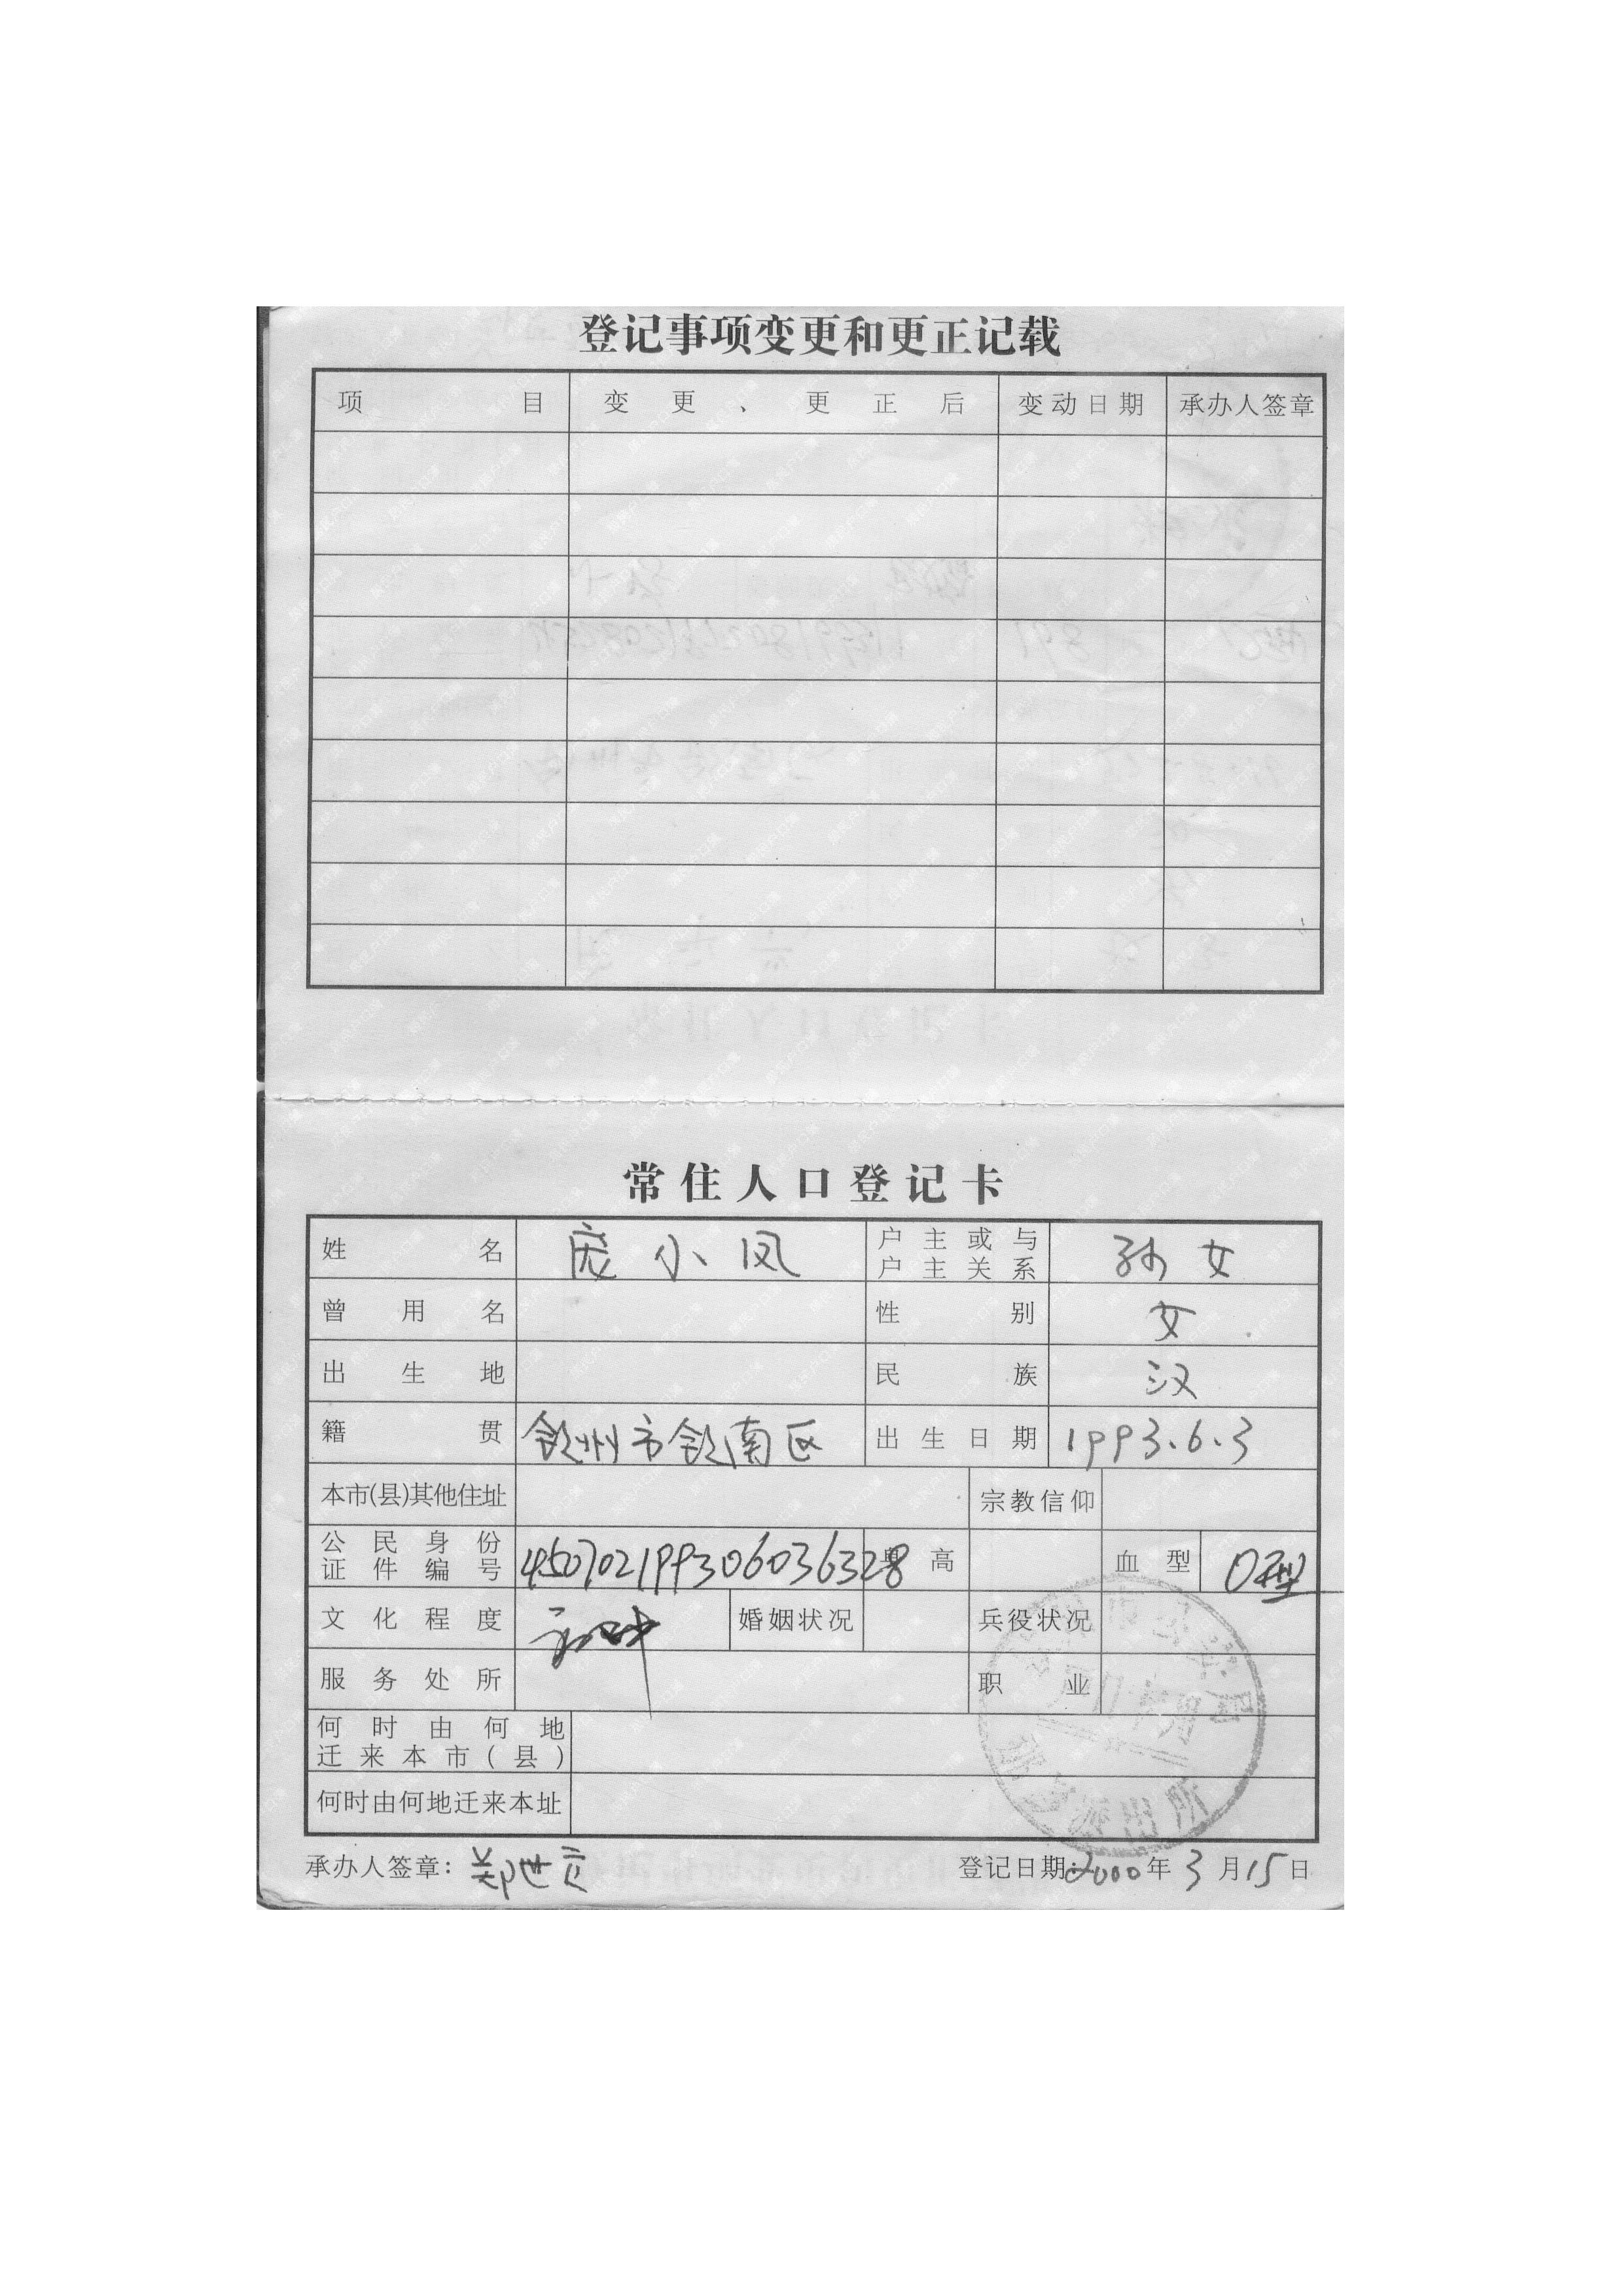 登记事项变更和更正记载
项目 变更、更正后 变动日期 承办人签章
常住人口登记卡
姓名 庞小凤 户主或与户主关系 孙女
曾用名 性别 女
出生地 民族 汉
籍贯 钦州市钦南区 出生日期 1993.6.3
本市(县)其他住址 宗教信仰
公民身份证件编号 450702199306036328 身高 血型 O型
文化程度 婚姻状况 兵役状况
服务处所 职业
何时由何地迁来本市(县)
何时由何地迁来本址
承办人签章: 郑世 登记日期: 2000年3月15日